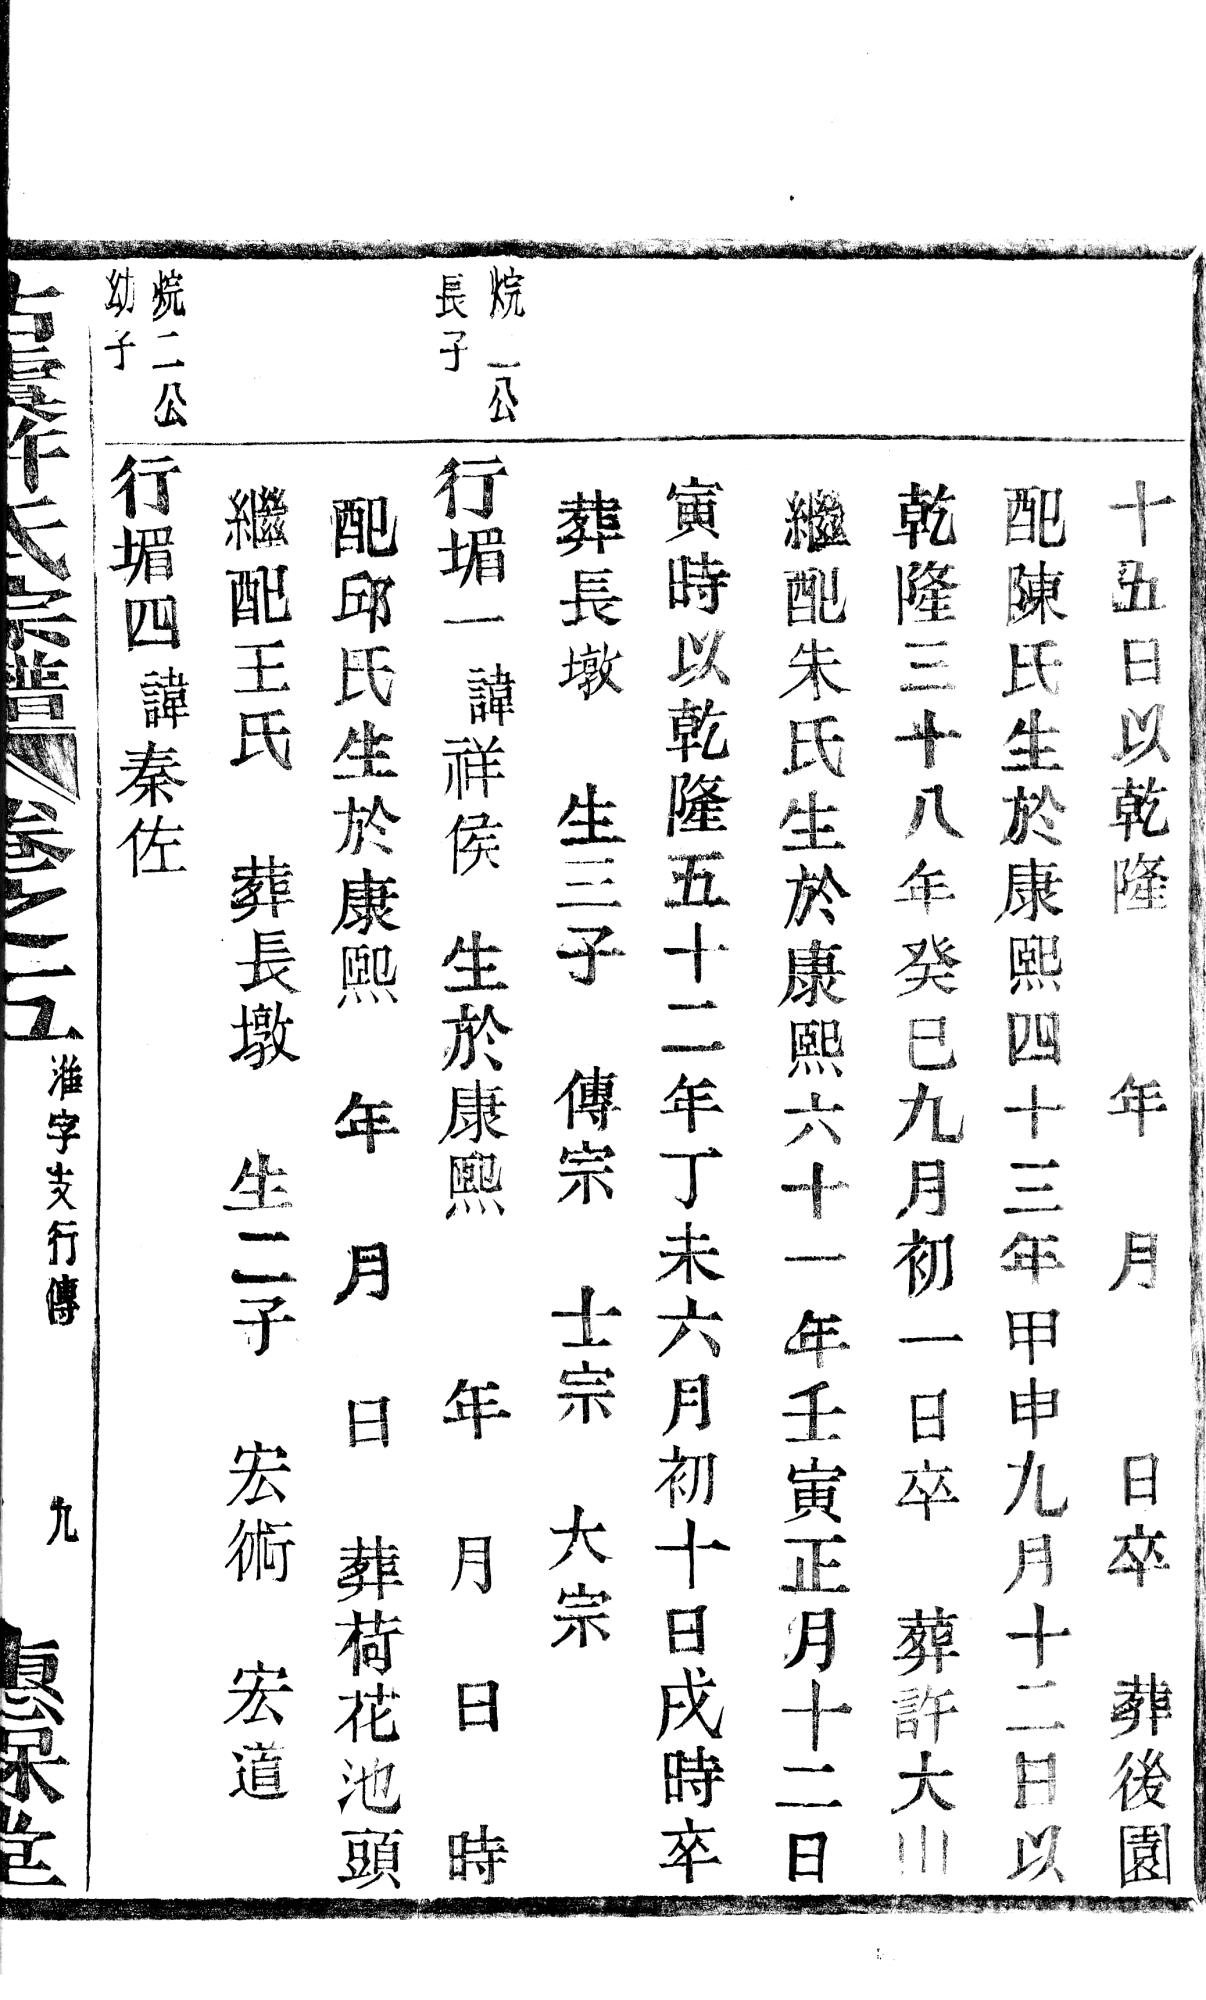 十五日以乾隆　年　月　日卒　葬後園
配陳氏生於康熙四十三年甲申九月十二日以
乾隆三十八年癸巳九月初一日卒　葬許大山
繼配朱氏生於康熙六十一年壬寅正月十二日
寅時以乾隆五十二年丁未六月初十日戌時卒
葬長墩　生三子　傳宗　士宗　大宗
烷一公
長子
行堳一　諱祥侯　生於康熙　年　月　日　時
配邱氏生於康熙　年　月　日　葬荷花池頭
繼配王氏　葬長墩　生二子　宏術　宏道
烷二公
幼子
行堳四　諱秦佐
古虞許氏宗譜　卷之五　淮字支行傳　九